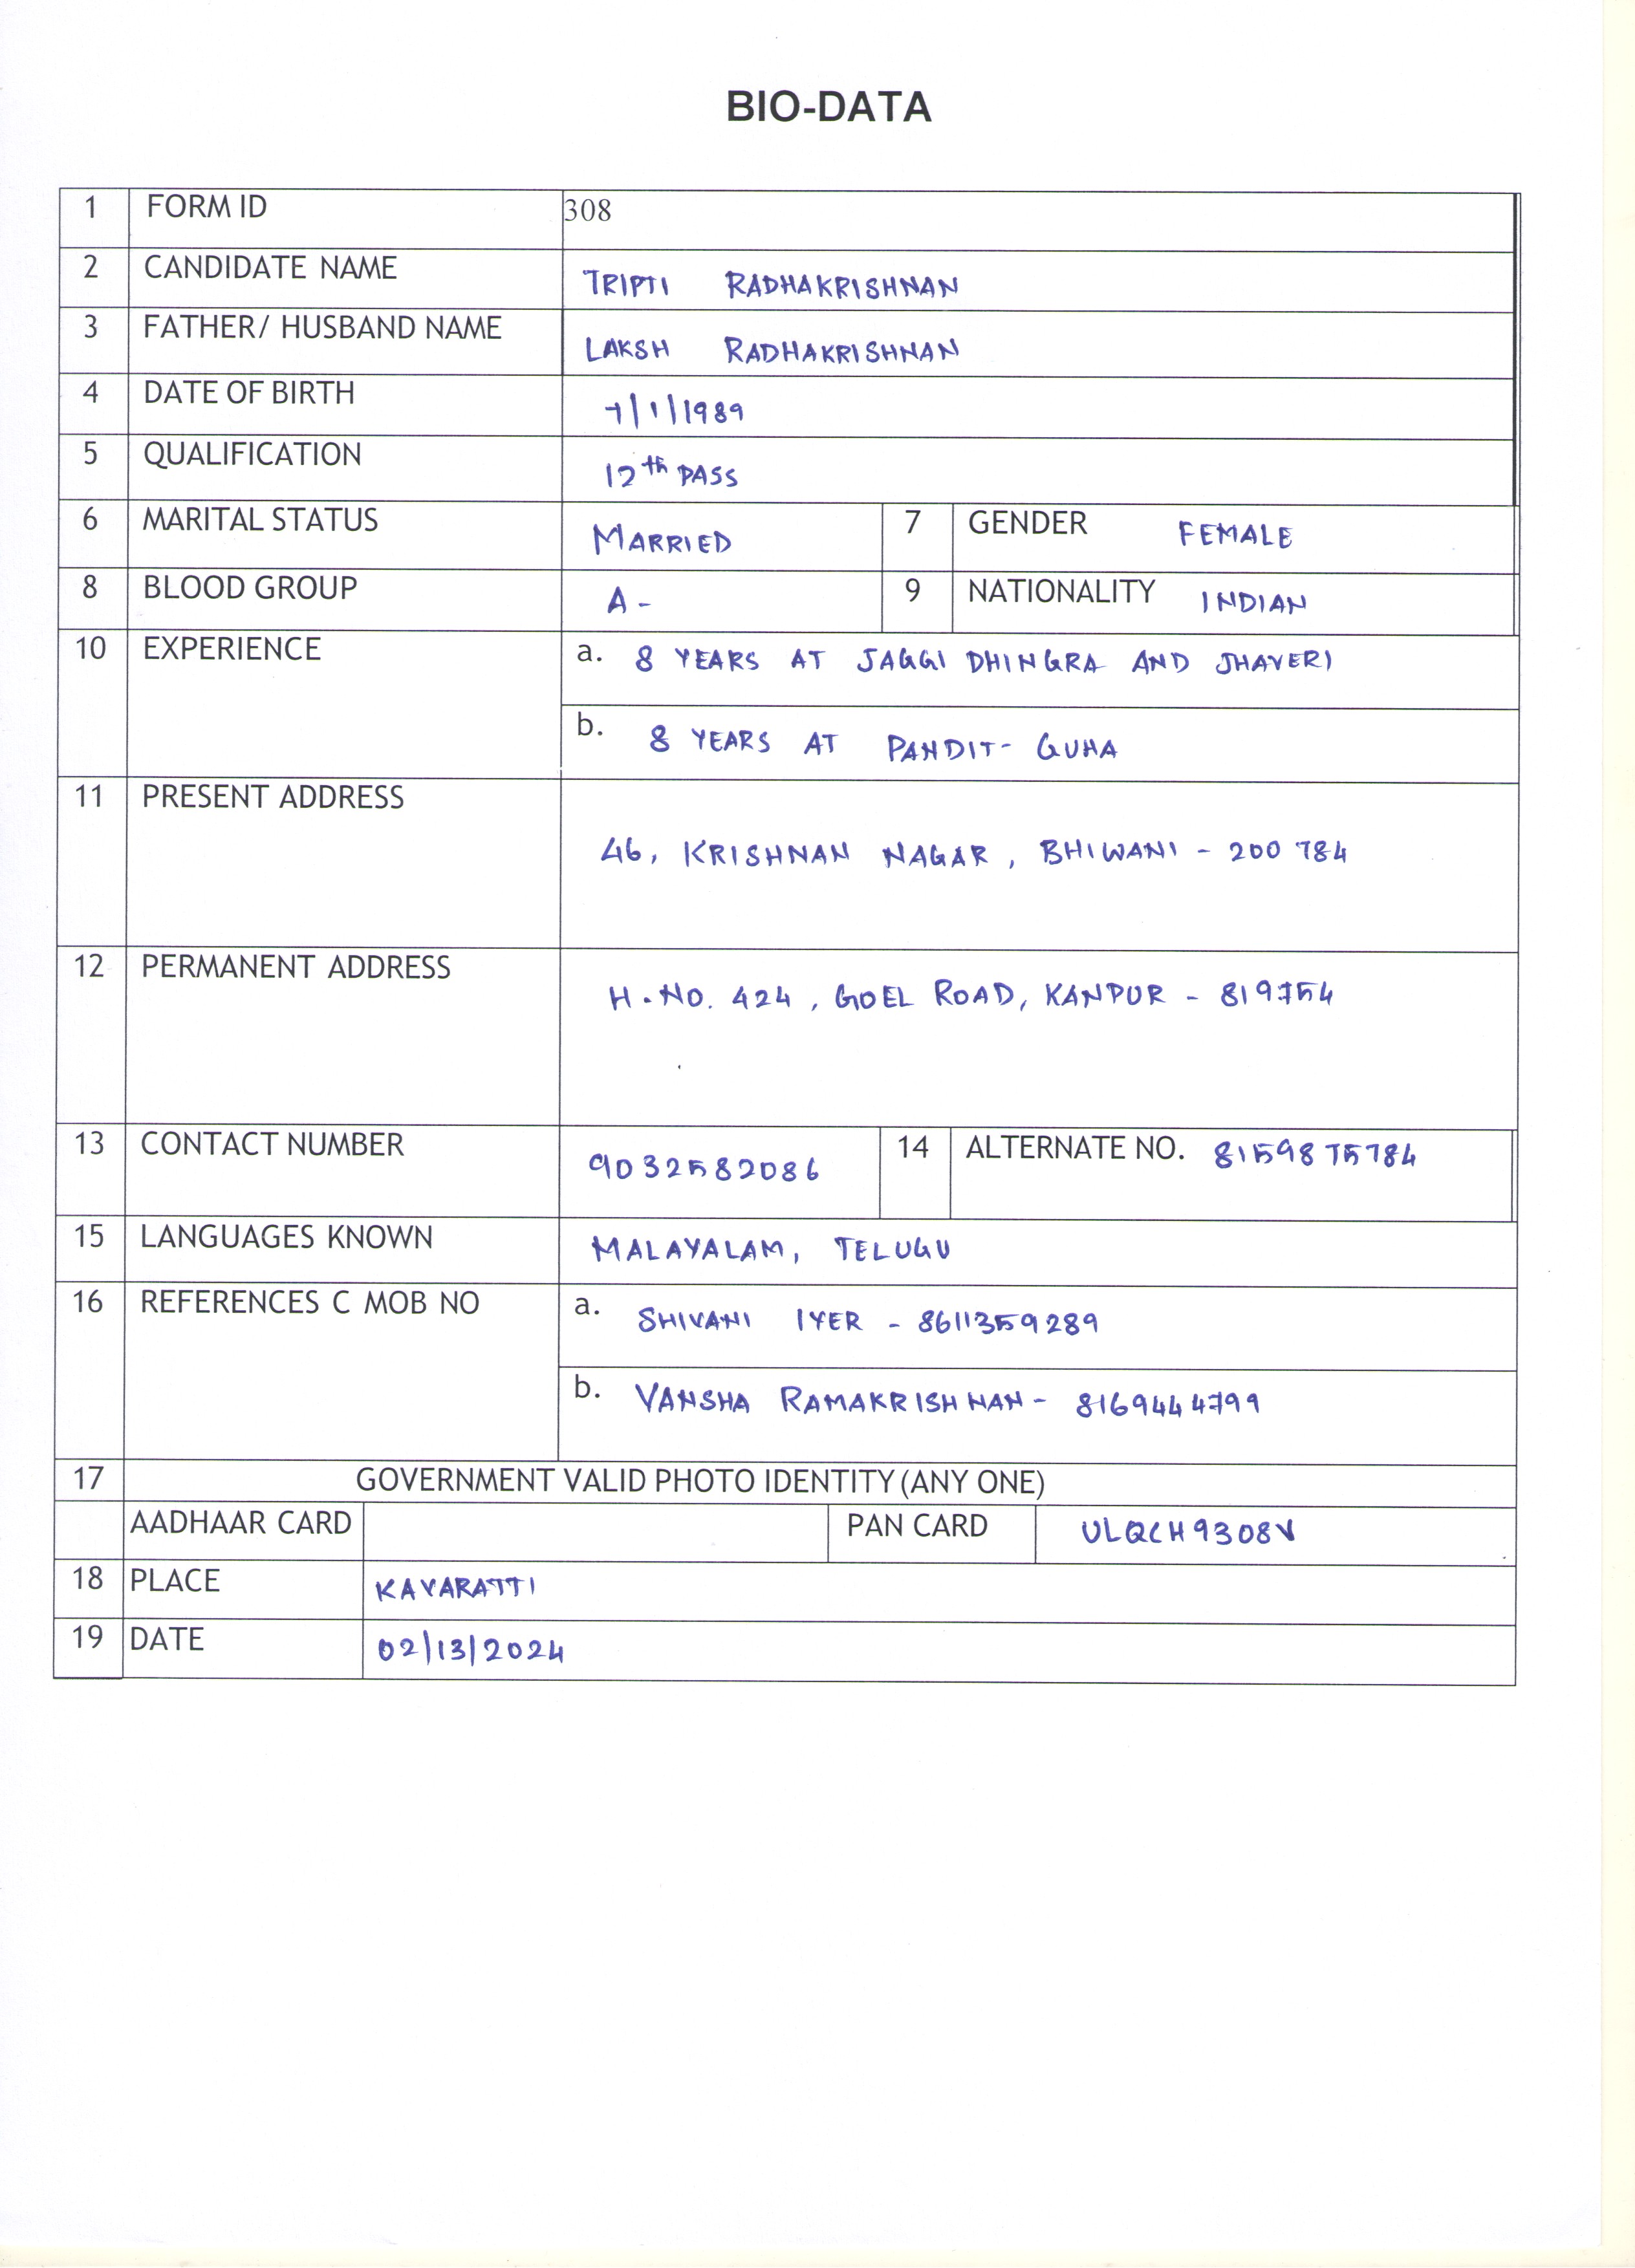 BIO-DATA
1 FORM ID 308
2 CANDIDATE NAME TRIPTI RADHAKRISHNAN
3 FATHER/ HUSBAND NAME LAKSH RADHAKRISHNAN
4 DATE OF BIRTH 7/1/1989
5 QUALIFICATION 12th PASS
6 MARITAL STATUS MARRIED 7 GENDER FEMALE
8 BLOOD GROUP A- 9 NATIONALITY INDIAN
10 EXPERIENCE a. 8 YEARS AT JAGGI DHINGRA AND JHAVERI
b. 8 YEARS AT PANDIT- GUHA
11 PRESENT ADDRESS
46, KRISHNAN NAGAR, BHIWANI - 200784
12 PERMANENT ADDRESS
H.NO. 424, GOEL ROAD, KANPUR - 819754
13 CONTACT NUMBER 9032582086 14 ALTERNATE NO. 8159875784
15 LANGUAGES KNOWN MALAYALAM, TELUGU
16 REFERENCES C MOB NO a. SHIVANI IYER - 8611359289
b. VANSHA RAMAKRISHNAN - 8169444799
17 GOVERNMENT VALID PHOTO IDENTITY (ANY ONE)
AADHAAR CARD PAN CARD ULQCH9308V
18 PLACE KAVARATTI
19 DATE 02/13/2024